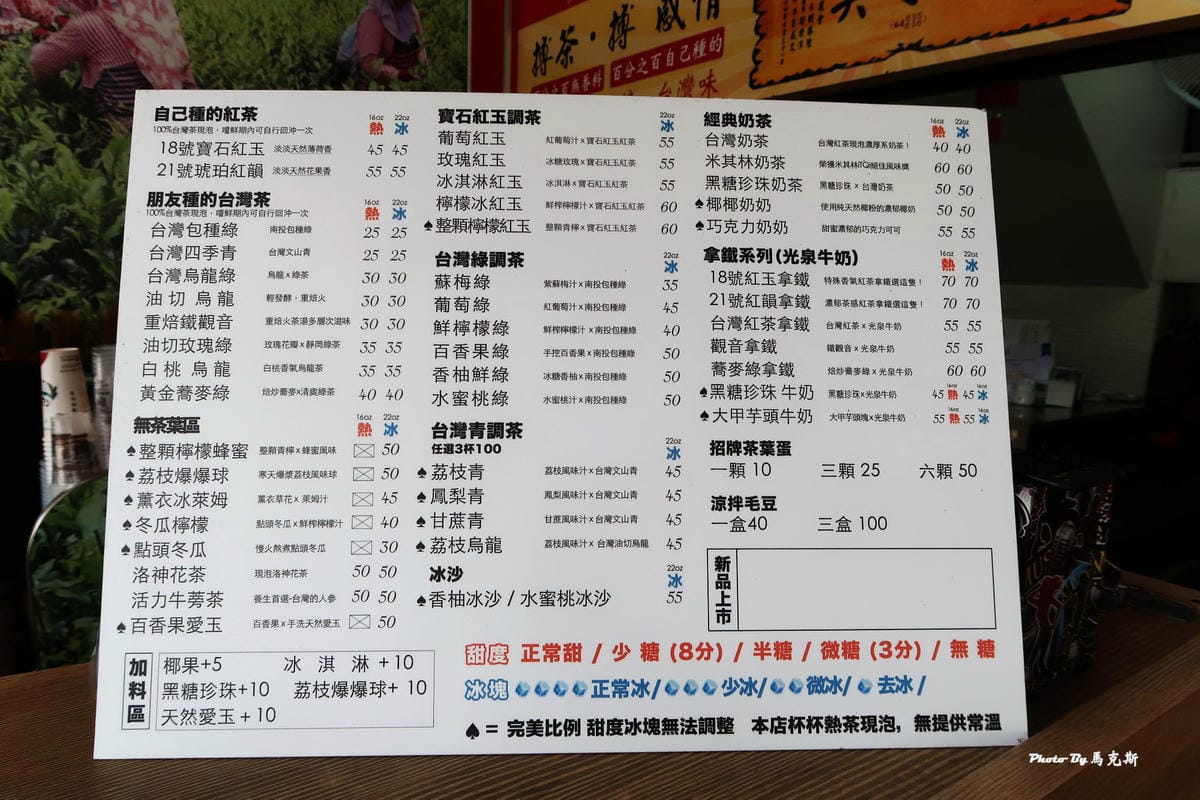 搏茶·搏 感情
百分之百無香料 百分之百自己種的
台灣味
自己種的紅茶
100%台灣茶現泡,嚐鮮期內可自行回沖一次
16oz 22oz
熱 冰
18號寶石紅玉 淡淡天然薄荷香 45 45
21號琥珀紅韻 淡淡天然花果香 55 55
朋友種的台灣茶
100%台灣茶現泡,嚐鮮期內可自行回沖一次
16oz 22oz
熱 冰
台灣包種綠 南投包種綠 25 25
台灣四季青 台灣文山青 25 25
台灣烏龍綠 烏龍x綠茶 30 30
油切 烏龍 輕發酵,重焙火 30 30
重焙鐵觀音 重焙火茶湯多層次滋味 30 30
油切玫瑰綠 玫瑰花瓣x靜岡綠茶 35 35
白桃 烏龍 白桃香氣烏龍茶 35 35
黃金蕎麥綠 焙炒蕎麥x清爽綠茶 40 40
無茶葉區
16oz 22oz
熱 冰
♠整顆檸檬蜂蜜 整顆青檸x蜂蜜風味 50
♠荔枝爆爆球 寒天爆漿荔枝風味球 50
♠薰衣冰萊姆 薰衣草花x萊姆汁 45
♠冬瓜檸檬 點頭冬瓜x鮮榨檸檬汁 40
♠點頭冬瓜 慢火熬煮點頭冬瓜 30
洛神花茶 現泡洛神花茶 50 50
活力牛蒡茶 養生首選-台灣的人參 50 50
♠百香果愛玉 百香果x手洗天然愛玉 50
加料區
椰果+5 冰淇淋+10
黑糖珍珠+10 荔枝爆爆球+10
天然愛玉+10
寶石紅玉調茶
22oz
冰
葡萄紅玉 紅葡萄汁x寶石紅玉紅茶 55
玫瑰紅玉 冰糖玫瑰x寶石紅玉紅茶 55
冰淇淋紅玉 冰淇淋x寶石紅玉紅茶 55
檸檬冰紅玉 鮮榨檸檬汁x寶石紅玉紅茶 60
♠整顆檸檬紅玉 整顆青檸x寶石紅玉紅茶 60
台灣綠調茶
22oz
冰
蘇梅綠 紫蘇梅汁x南投包種綠 35
葡萄綠 紅葡萄汁x南投包種綠 45
鮮檸檬綠 鮮榨檸檬汁x南投包種綠 40
百香果綠 手挖百香果x南投包種綠 50
香柚鮮綠 冰糖香柚x南投包種綠 50
水蜜桃綠 水蜜桃汁x南投包種綠 50
台灣青調茶
任選3杯100
22oz
冰
♠荔枝青 荔枝風味汁x台灣文山青 45
♠鳳梨青 鳳梨風味汁x台灣文山青 45
♠甘蔗青 甘蔗風味汁x台灣文山青 45
♠荔枝烏龍 荔枝風味汁x台灣油切烏龍 45
冰沙
22oz
冰
♠香柚冰沙/水蜜桃冰沙 55
經典奶茶
16oz 22oz
熱 冰
台灣奶茶 台灣紅茶現泡濃厚系奶茶! 40 40
米其林奶茶 榮獲米其林iTQi絕佳風味獎 60 60
黑糖珍珠奶茶 黑糖珍珠x台灣奶茶 50 50
♠椰椰奶奶 使用純天然椰粉的濃郁椰奶 50 50
♠巧克力奶奶 甜蜜濃郁的巧克力可可 55 55
拿鐵系列(光泉牛奶)
16oz 22oz
熱 冰
18號紅玉拿鐵 特殊香氣紅茶拿鐵選這隻! 70 70
21號紅韻拿鐵 濃郁茶感紅茶拿鐵選這隻! 70 70
台灣紅茶拿鐵 台灣紅茶x光泉牛奶 55 55
觀音拿鐵 鐵觀音x光泉牛奶 55 55
蕎麥綠拿鐵 焙炒蕎麥綠x光泉牛奶 60 60
♠黑糖珍珠 牛奶 黑糖珍珠x光泉牛奶 45 16oz 熱 55 16oz 冰
♠大甲芋頭牛奶 大甲芋頭塊x光泉牛奶 55 16oz 熱 55 16oz 冰
招牌茶葉蛋
一顆10 三顆25 六顆50
涼拌毛豆
一盒40 三盒100
新品上市
甜度 正常甜/少糖(8分)/半糖/微糖(3分)/無糖
冰塊 正常冰/少冰/微冰/去冰/
♠=完美比例 甜度冰塊無法調整 本店杯杯熱茶現泡,無提供常溫
Photo By 馬克斯